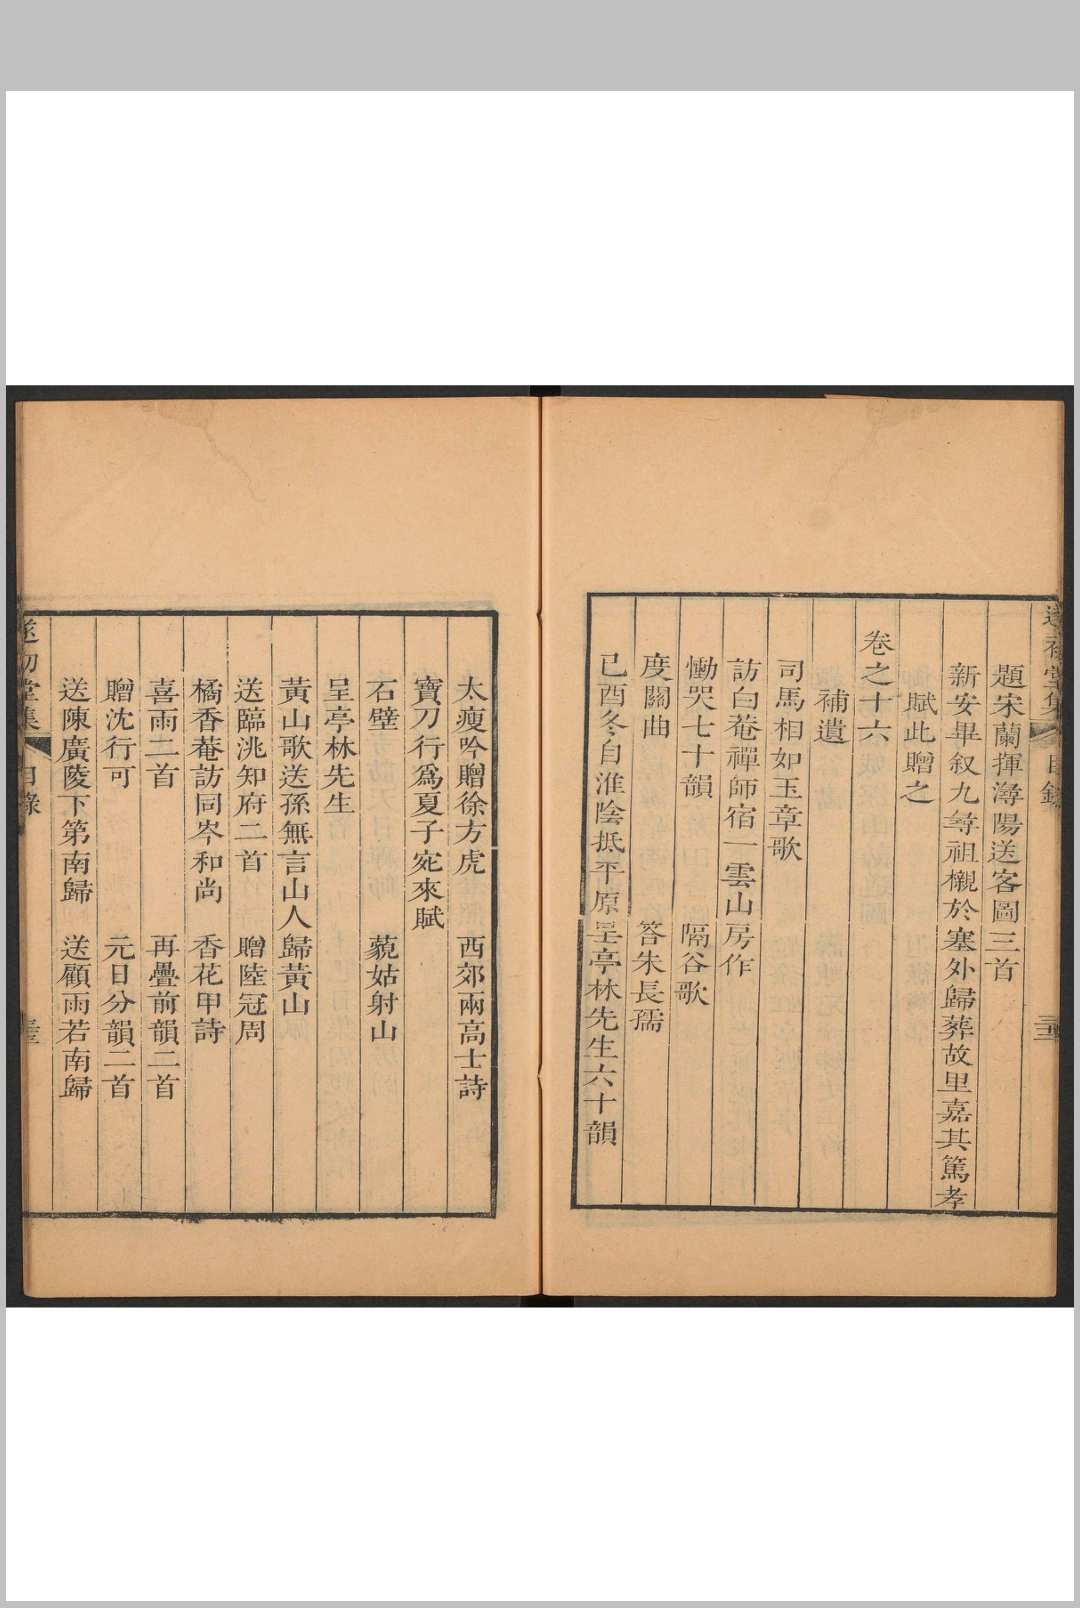 題宋蘭揮潯陽送客圖三首
新安畢叙九尋祖櫬於塞外歸葬故里嘉其篤孝
賦此贈之
卷之十六
補遺
司馬相如玉章歌
訪白菴禪師宿一雲山房作
慟哭七十韻 隔谷歌
度關曲 答朱長孺
己酉冬自淮陰抵平原呈亭林先生六十韻
太瘦吟贈徐方虎 西郊兩高士詩
寶刀行爲夏子宛來賦
石壁 藐姑射山
呈亭林先生
黃山歌送孫無言山人歸黃山
送臨洮知府二首 贈陸冠周
橘香菴訪同岑和尚 香花甲詩
喜雨二首 再疊前韻二首
贈沈行可 元日分韻二首
送陳廣陵下第南歸 送顧雨若南歸
遂初堂集 目錄